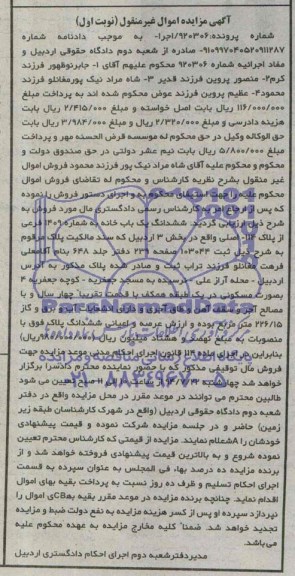 آگهی مزایده اموال غیرمنقول (نوبت اول)
شماره پرونده:۹۲۰۳۰۶/اجرا- به موجب دادنامه شماره
۹۱۰۹۹۷۰۴۰۵۲۰۹۱۱۲۸۷- صادره از شعبه دوم دادگاه حقوقی اردبیل و
مفاد اجرائیه شماره ۹۲۰۳۰۶ محکوم علیهم آقای ۱- جابرنوظهور فرزند
کرم۲- منصور پروین فرزند قدیر ۳- شاه مراد نیک پورمغانلو فرزند
محمود۴- عظیم پروین فرزند عوض محکوم شده اند به پرداخت مبلغ
۱۱۶/۰۰۰/۰۰۰ ریال بابت اصل خواسته و مبلغ ۲/۴۱۵/۰۰۰ ریال بابت
هزینه دادرسی و مبلغ ۲/۳۲۰/۰۰۰ ریال و مبلغ ۳/۹۸۴/۰۰۰ ریال بابت
حق الوکاله وکیل در حق محکوم له موسسه قرض الحسنه مهر و پرداخت
مبلغ ۵/۸۰۰/۰۰۰ ریال بابت نیم عشر دولتی در حق صندوق دولت و
محکوم و محکوم علیه آقای شاه مراد نیک پور فرزند محمود فروش اموال
غیر منقول بشرح نظریه کارشناس و محکوم له تقاضای فروش اموال
محکوم علیه را جهت استیفای محکوم به و اجرای دستور فروش را نموده
که پس از ارجاع امر به کارشناس رسمی دادگستری مال مورد فروش به
شرح ذیل ارزیابی گردید: ششدانگ یک باب خانه به شماره ۱۴۰۹ فرعی
از پلاک اصلی واقع در بخش ۳ اردبیل که سند مالکیت پلاک مرقوم
به شرح ذیل ثبت ۱۰۳۰۴۴ صفحه ۲۳۱ دفتر جلد ۶۴۸ بنام آقاعملی
فرهت مغانلو فرزند تراب ثبت و صادر شده پلاک مذکور به آدرس
اردبیل - محله آراز علی - نرسیده به مسجد جعفریه - کوچه جعفریه ۴
بصورت مسکونی در یک طبقه همکف با قدمت تقریبا چهار سال و با
مصالح آجر و سقف
۲۲۶/۱۵ متر مربع بوده و ارزش عرصه و اعیانی ششدانگ پلاک فوق با
منصوبات به مبلغ نهصد و هشتاد میلیون ریال
بنابراین در اجرای ماده ۱۱۴ قانون اجرای احکام مدنی موعد مزایده جهت
فروش مال توقیفی مذکور که با حضور نماینده محترم دادسرا برگزار
خواهد شد صبح تعیین می شود
طالبین محترم می توانند در موعد مقرر در محل مزایده واقع در دفتر
شعبه دوم دادگاه حقوقی اردبیل (واقع در شهرک کارشناسان طبقه زیر
زمین) حاضر و در جلسه مزایده شرکت نموده و قیمت پیشنهادی
خودشان را اعلام نمایند. مزایده از قیمتی که کارشناس محترم تعیین
نموده شروع و به بالاترین قیمت پیشنهادی فروخته خواهد شد و از
برنده مزایده ده درصد بها، فی المجلس به عنوان سپرده به قسمت
اجرای احکام تسلیم و ظرف ده روز نسبت به پرداخت بقیه بهای اموال
اقدام نماید. چنانچه برنده مزایده در موعد مقرر بقیه بهای اموال را
نپردازد سپرده او پس از کسر هزینه مزایده به نفع دولت ضبط و مزایده
تجدید خواهد شد. ضمنا کلیه مخارج مزایده به عهده محکوم علیه
می باشد.
مدیردفترشعبه دوم اجرای احکام دادگستری اردبیل